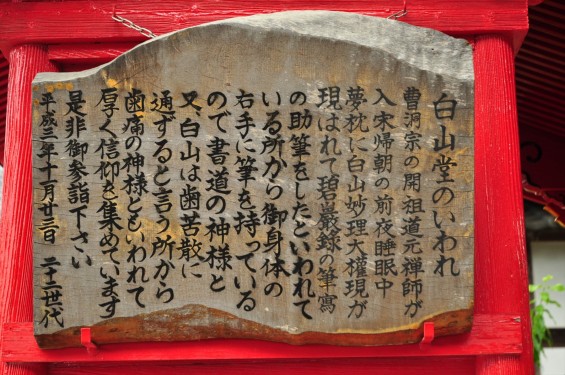 白山堂のいわれ
曹洞宗の開祖道元禅師が
入宋帰朝の前夜睡眠中
夢枕に白山妙理大權現が
現はれて碧巌録の筆寫
の助筆をしたといわれて
いる所から御身体の
右手に筆を持っている
ので書道の神様と
又、白山は歯苦散に
通ずると言う所から
歯痛の神様ともいわれて
厚く信仰を集めています
是非御参詣下さい
平成三年十月廿三日 二十二世代